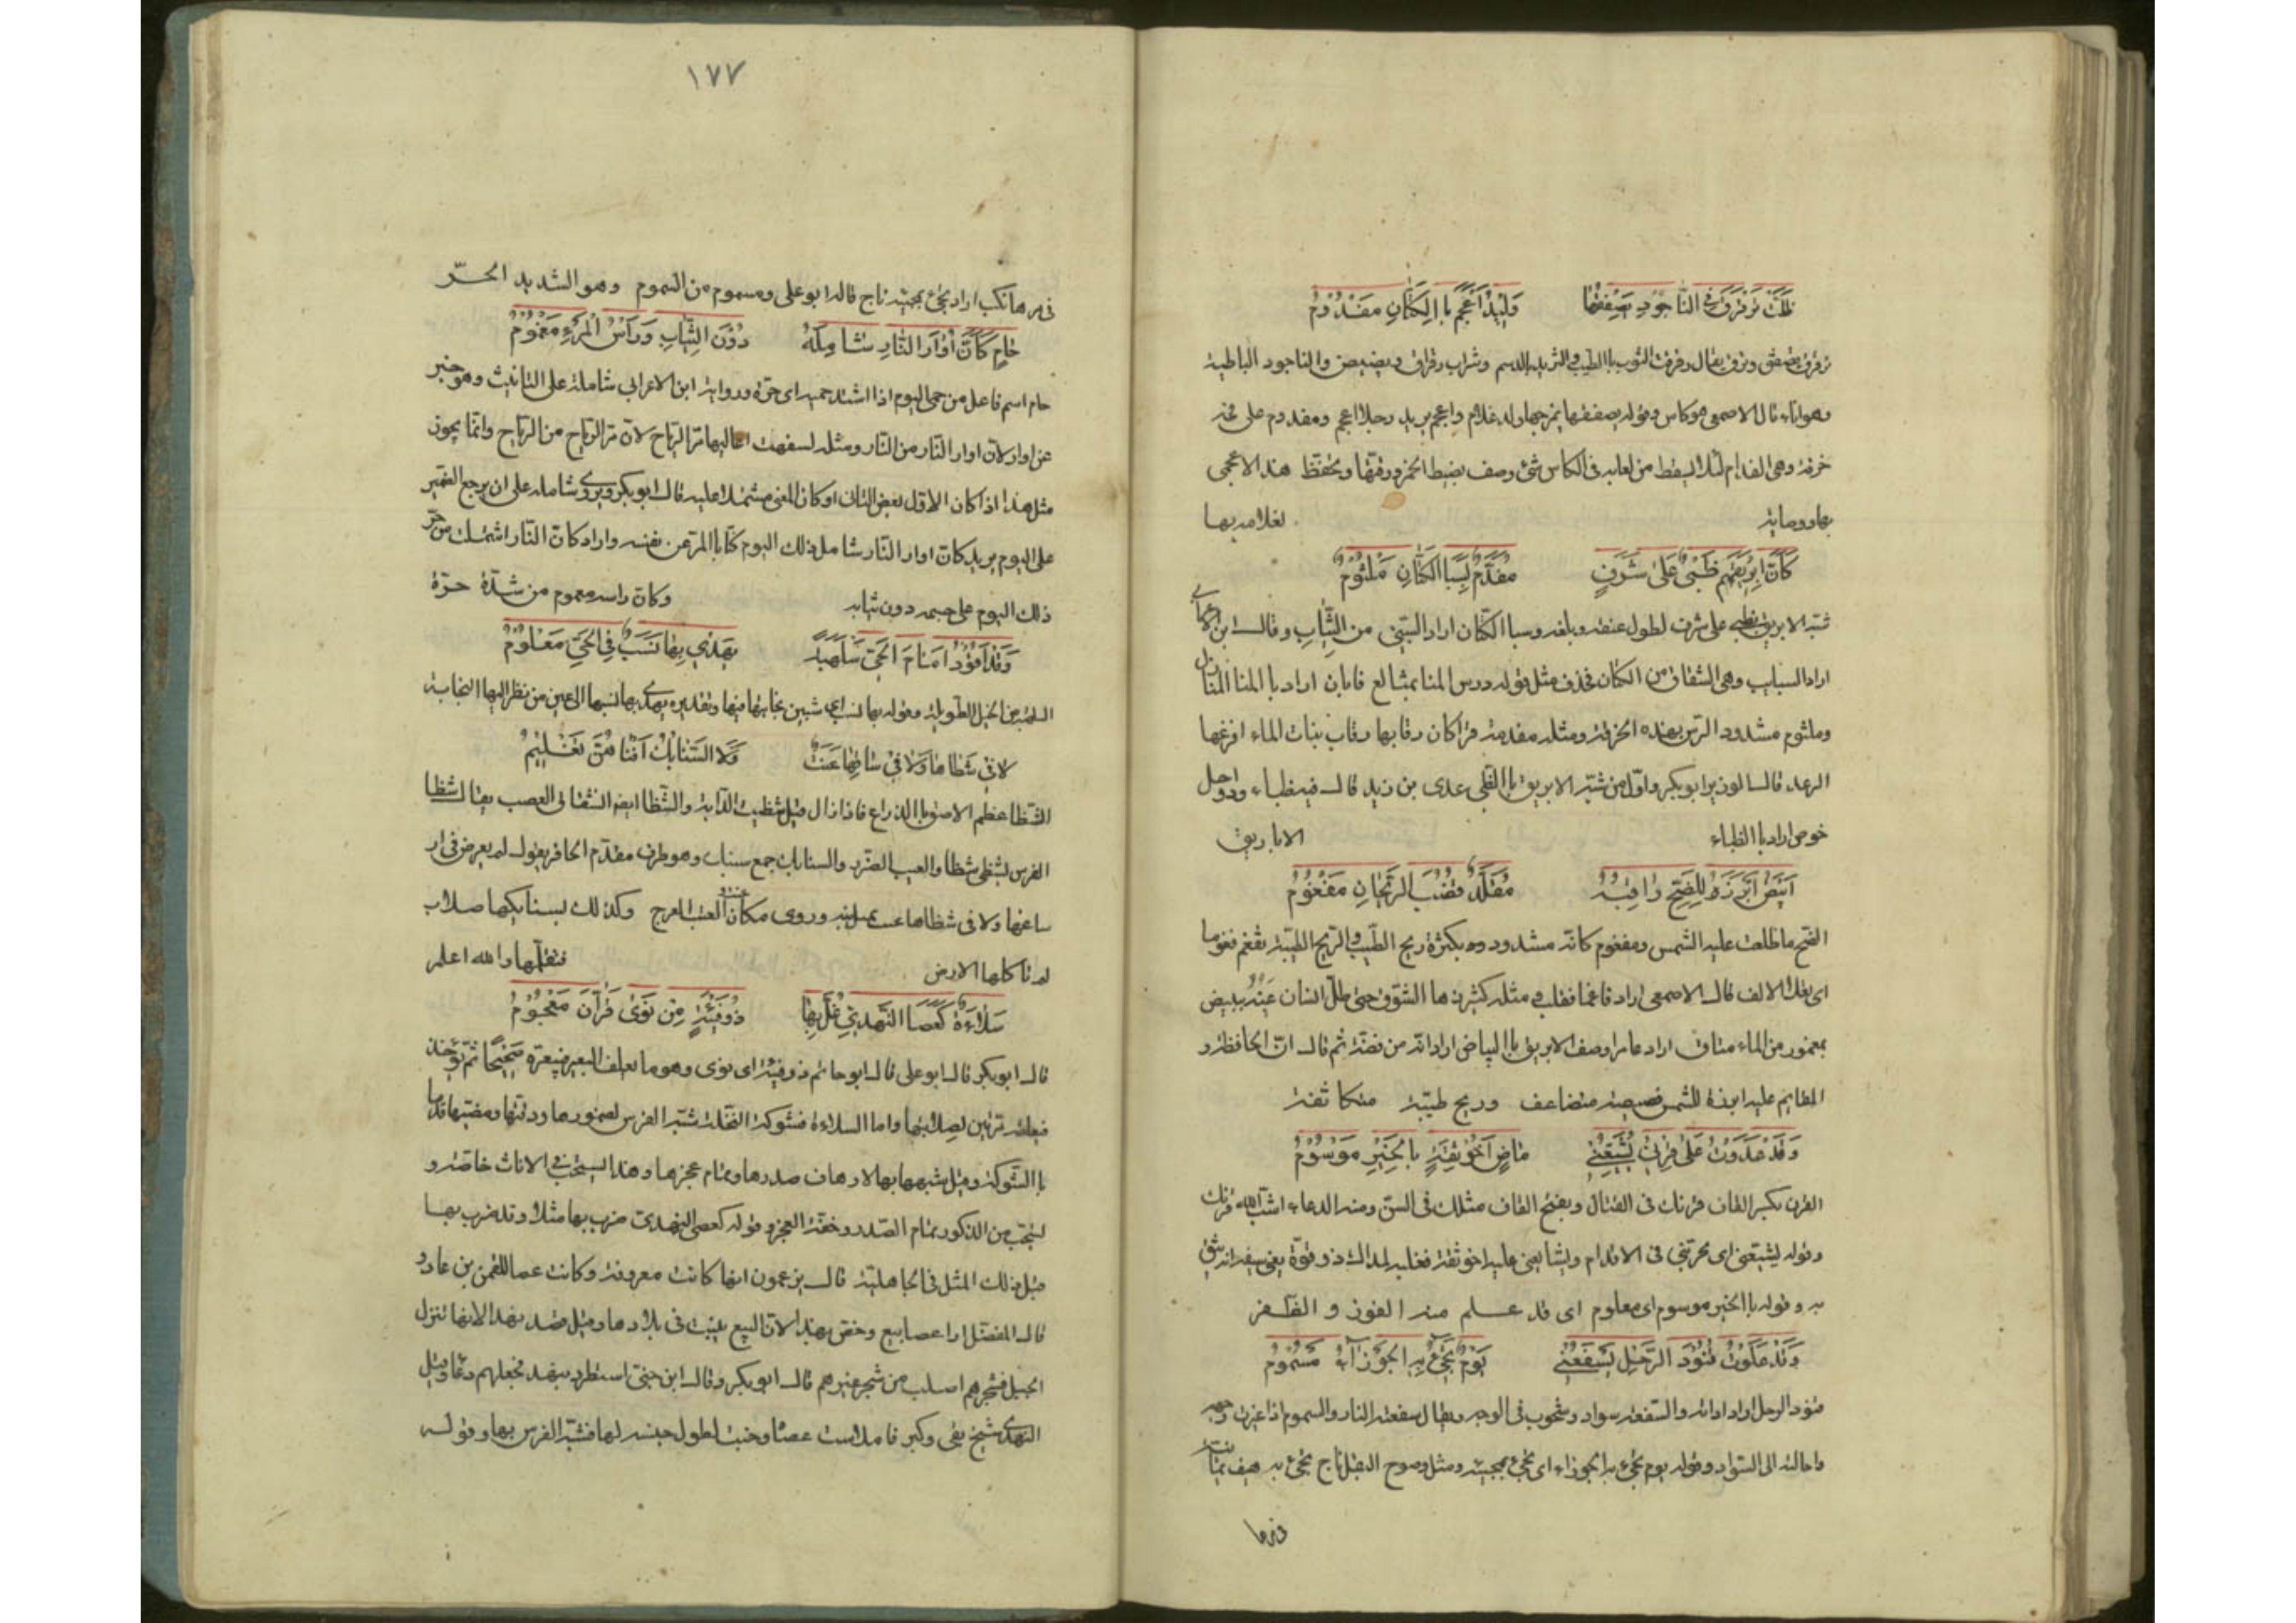 ظلت ترقرق في الناجود يصفقها وليد اعجم باالكتان مفدوم
ترقرق يصفق وترق يقال رقرقت الثوب باالطيب والثريد بالدسم وشراب رقراق وبصيص والناجود الباطية
وهو اناء قال الاصمعي هو كاس وقوله يصفقها يمزجها وليد غلام واعجم يريد رجلا اعجم ومفدوم على فمه
خرقة وهي الفدام لئلا يسقط من لعابه في الكاس شئ وصف بضبط الخمر ورقتها وتحفظ هذا الاعجمي
بها ووصايته لغلامه بها
كَاَنَّ اِبْرِيقَهُم ظَبْيٌ عَلَى شَرَفٍ مفدّمٌ بِسَبا الكَتّانِ مَلْثُوْمُ
شبه الابريق بظبي على شرف لطول عنقه وبلغه وسبا الكتان اراد البتني من الثياب وقال ابن
اراد السبايب وهي الشقاق من الكتان فحذف مثل قوله درس المنا بمتالع فابان اراد باالمنا المنازل
وملثوم مشدود الراس بهذه الخرقة ومثله مفدمة قزا كان رقابها رقاب بنات الماء افزعها
الرعد قال الوزير ابو بكر واول من شبه الابريق باالظبي عدي بن زيد قال فيه ظباء ودواخل
خوص اراد باالظباء الاباريق
اَبْيَضُ اَبْرَزَهُ لِلضِّحِّ رَاقِبُهُ مُقَلَّدٌ قُضُبَ الرَّيْحَانِ مَفْغُوْمُ
الضح ما طلعت عليه الشمس ومفغوم كانه مشدود وه بكثرة ريح الطيب والريح الطيبة تفغم فغوما
اى يملك الانف قال الاصمعي اراد فاغما فقلب مثله كثير من ها الشوق حتى ظل انسان عينه ببيض
بمغمور من الماء متاق اراد غامر وصف الابريق باالبياض اراد انه من فضة ثم قال ان الحافظ و
القايم عليه ابرزه للشمس فبصيصه متضاعف وريح طيبة متكاثفة
وَقَدْ غَدَوْتُ عَلَى قِرْنِي يُشَيِّعُنِي مَاضٍ اَخُو ثِقَةٍ بِالخَيْرِ مَوْسُوْمُ
القرن بكسر القاف قرنك في القتال وبفتح القاف مثلك في السن ومنه الدعاء اشب الله قرنك
وقوله يشيعني اى يجرئني في الاقدام ويشايعني عليه اخو ثقة فعليه لمداك ذو قوة يعني سيفه اذ يثق
به وقوله باالخير موسوم اى معلوم اى قد علم منه الفوز و الظفر
وَقَدْ عَلَوْتُ قُتُودَ الرَّحْلِ يَسْفَعُنِي يَوْمٌ تَجِيءُ بِهِ الجَوْزَآءُ مَسْمُومُ
قتود الرحل اراد اداته والسفعة سواد وشحوب في الوجه ويقال سفعته النار والسموم اذا غيرت وجهه
واحالته الى السواد وقوله يوم تجئ به الجوزاء اى تجئ بمجيئه ومثل وصوح البقل ناج تجئ به هيف يمانية
في مرها
١٧٧
في مرها نكب اراد تجئ بمجيئه ناج قاله ابو على ومسموم من السموم وهو الشديد الحرّ
حَامٍ كَاَنَّ اُوَارَ النَّارِ شَامِلَهُ دُوْنَ الثِّيَابِ وَرَاْسُ المَرْءِ مَعْمُوْمُ
حام اسم فاعل من حمى اليوم اذا اشتد حميه اى حره ورواية ابن الاعرابي شاملة على التانيث وهو خبر
عن اوار لان اوار النار من النار ومثله تسفهت اعاليها مر الرياح لان مر الرياح من الرياح وانما يجوز
مثل هذا اذا كان الاول بعض الثاني او كان المعنى مشتملا عليه قال ابو بكر ويروى شامله على ان يرجع الضمير
على اليوم يريد كان اوار النار شامل ذلك اليوم كنا باالمرء عن نفسه واراد كان النار اشتملت من حر
ذلك اليوم على جسمه دون ثيابه وكان راسه معموم من شدة حرّه
وَقَدْ اَقُوْدُ اَمَامَ الحَيِّ سَلْهَبَةً يَهْدِي بِهَا نَسَبٌ فِي الحَيِّ مَعْلُوْمُ
السلهبة من الخيل الطويلة وقوله بها نسب اى تبين نجابتها فيها وتقديره يهدى بها نسبها الى عين من نظر اليها النجابة
لَا فِي شَظَاهَا وَلَا فِي سَاقِهَا عَنَتٌ وَلَا السَّنَابِكُ اَفْنَاهُنَّ تَقْلِيْمُ
الشظا عظم لاصق باالذراع فاذا زال قيل شظيت الدابة والشظا ايضا انشقاق العصب يقال شظا
الفرس يشظى شظا والعيب الضرب والسنابك جمع سنبك وهو طرف مقدم الحافر يقول لم يعرض في ار
ساغها ولا في شظاها عنت وروى مكان العنت العرج وكذلك سنابكها صلاب
لم تاكلها الارض فتقلمها والله اعلم
سَلَّاءَةٌ كَعَصَا النَّهْدِيِّ غُلَّ بِهَا ذُوْ فَيْئَةٍ مِنْ نَوَى قُرَّانَ مَعْجُوْمُ
قال ابو بكر قال ابو على قال ابو حاتم ذو فيئة اى نوى وهو ما يعلف البعير فيبعره صحيحا ثم يؤخذ
فيعلفه مرتين لصلابتها واما السلاءة فشوكة النخلة شبه الفرس لضمورها ودقتها ومضيها قدما
باالشوكة وقيل شبهها بها لارهاف صدرها وتمام عجزها وهذا يستحب في الاناث خاصة و
يستحب من الذكور تمام الصدر وخفة العجز وقوله كعصى النهدى ضرب بها مثلا وقد ضرب بها
قبل ذلك المثل في الجاهلية قال بن عمون انها كانت معروفة وكانت عصا للقمن بن عاد و
قال المفضل اراد عصا نبع وخص نهدا لان النبع ينبت في بلادها وقيل خصه بنهد لانها تنزل
الجبل فشجرهم اصلب من شجر غيرهم قال ابو بكر وقال ابن جني استطرد بنهد فجعلهم رعا وقيل
النهدى شيخ بقي وكبر فاملاست عصا وخبث لطول حبسه لها فشبه الفرس بها وقوله